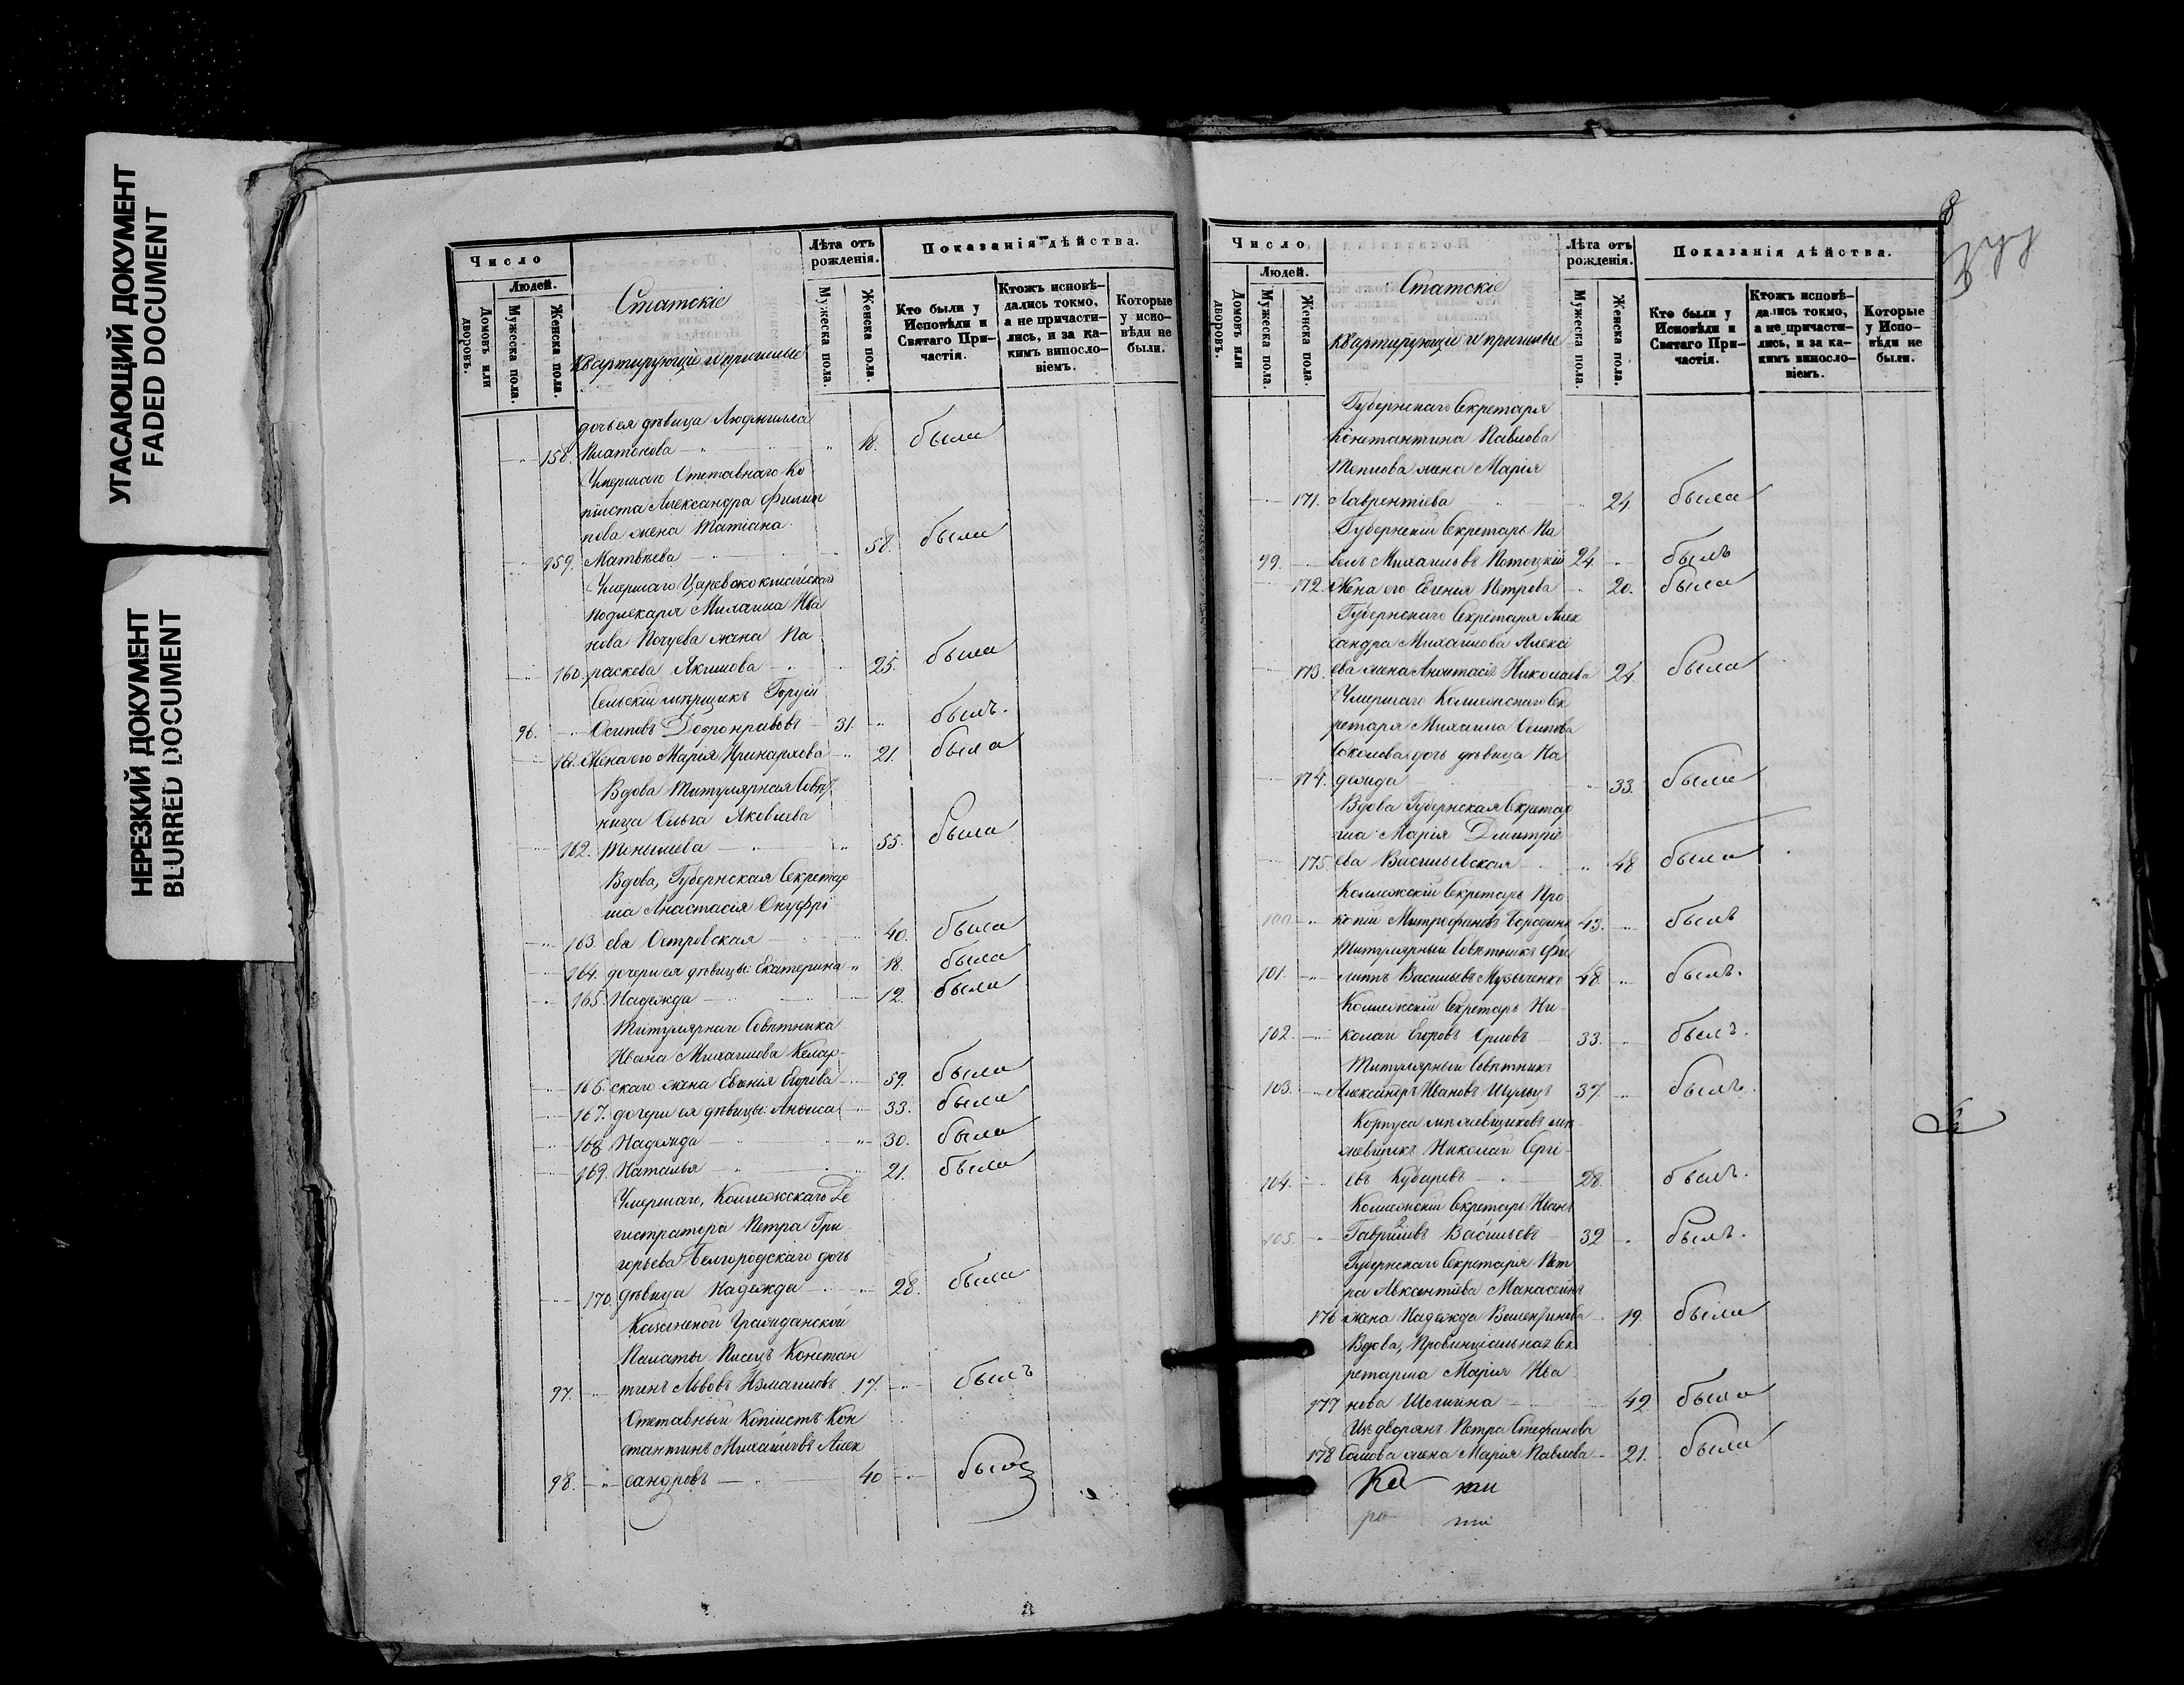 УГАСАЮЩИЙ ДОКУМЕНТ
FADED DOCUMENT
НЕРЕЗКИЙ ДОКУМЕНТ
BLURRED DOCUMENT
Число
Людей.
Домовъ или дворовъ.
Мужеска пола.
Женска пола.
Статскіе
квартирующіе и пришлые
Лѣта отъ рожденія.
Мужеска пола.
Женска пола.
Показанія дѣйства.
Кто были у Исповѣди и Святаго Причастія.
Ктожъ исповѣдались токмо, а не причастились, и за какимъ винословіемъ.
Которые у исповѣди не были.
дочь ея дѣвица Людмилла
158. Платонова 18. была
Умершаго Отставнаго Ко
піиста Александра Филип
пова жена Татіана
159. Матвѣева 58. была
Умершаго Царевококшайскаго
подлекаря Михаила Ива
нова жена Па
160. раскева Якимова 25. была
Сельскій мѣрщикъ
96. Осиповъ Добронравовъ 31. былъ.
161. Жена его Марія Иринархова 21. была
Вдова Титулярная Совѣт
ница Ольга Яковлева
162. 55. была
Вдова, Губернская Секретар
ша Анастасія Онуфрі
163. ева Островская 40. была
164. дочери ея дѣвицы: Екатерина 18. была
165. Надежда 12. была
Титулярнаго Совѣтника
Ивана Михаилова Келар
166. скаго жена Евгенія Егорова 59. была
167. дочери ея дѣвицы: Анфиса 33. была
168. Надежда 30. была
169. Наталья 21. была
Умершаго, Коллежскаго Ре
гистратора Петра Гри
горьева Белгородскаго дочь
170. дѣвица Надежда 28. была
Казанской Гражданской
Палаты Писецъ Констан
97. тинъ Львовъ Измаиловъ 17. былъ
Отставный Копіистъ Кон
стантинъ Михайловъ Алек
98. сандровъ 40 былъ
8
Число
Людей.
Домовъ или дворовъ.
Мужеска пола.
Женска пола.
Статскіе
квартирующіе и пришлые
Лѣта отъ рожденія.
Мужеска пола.
Женска пола.
Показанія дѣйства.
Кто были у Исповѣди и Святаго Причастія.
Ктожъ исповѣдались токмо, а не причастились, и за какимъ винословіемъ.
Которые у Исповѣди не были.
Губернскаго Секретаря
Константина Павлова
Теплова жена Марія
171. Лаврентіева 24. была
Губернскій Секретарь Па
99. велъ Михаиловъ Потоцкій 24. былъ
172. Жена его Евгенія Петрова 20. была
Губернскаго Секретаря Алек
сандра Михайлова Алексѣ
173. ева жена Анастасія Николаева 24. была
Умершаго Коллежскаго Сек
ретаря Михаила Осипова
Соколова дочь дѣвица На
174. дежда 33. была
Вдова Губернская Секретар
ша Марія Дмитріе
175. ева Васильевская 48 была
Коллежскій Секретарь Про
100. копій Митрофановъ Бородинъ 43. былъ
Титулярный Совѣтникъ Фи
101. липпъ Васильевъ Музыченко 48. былъ.
Коллежскій Секретарь Ни
102. колай Егоровъ Орловъ 33. былъ.
Титулярный Совѣтникъ
103. Александръ Ивановъ Шульцъ 37. былъ.
Корпуса межевщиковъ ме
жевщикъ Николай Сергі
104. евъ Кубаревъ 28. былъ.
Коллежскій Секретарь Иванъ
105. Гавриловъ Васильевъ 32 былъ.
Губернскаго Секретаря Пет
ра Авксентіева Манасеина
176 жена Надежда Валентинова 19. была
Вдова, Провинціальная Сек
ретарша Марія Ива
177 нова Шогина 42 была
Изъ дворянъ Петра Стефанова
178 жена Марія Павлова 21. была